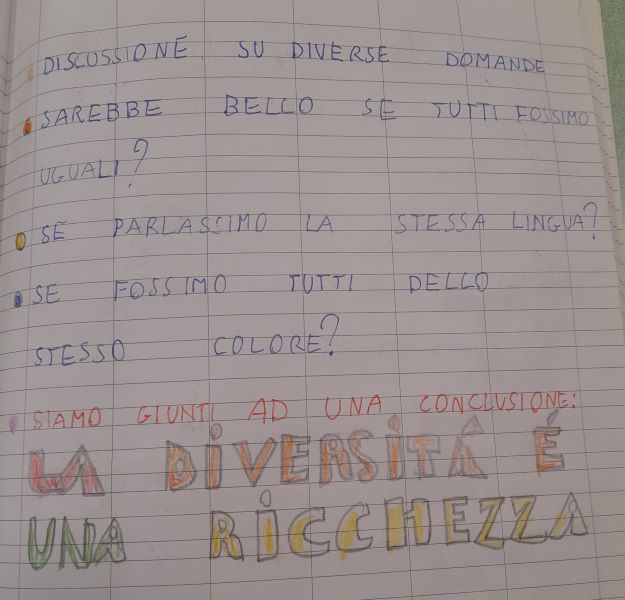 DISCUSSIONE SU DIVERSE DOMANDE
SAREBBE BELLO SE TUTTI FOSSIMO
UGUALI?
SE PARLASSIMO LA STESSA LINGUA?
SE FOSSIMO TUTTI DELLO
STESSO COLORE?
SIAMO GIUNTI AD UNA CONCLUSIONE:
LA DIVERSITÁ É
UNA RICCHEZZA